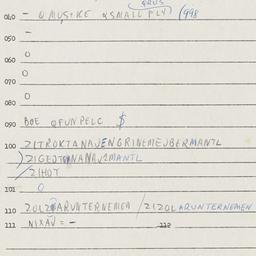 QRUS
040 - QMUSIKE QSMALL PLY (998
050 -
060 0
070 0
080 0
090 BOE QFUNPELC $
100 ZITROKTANAJENGRINEMEJBERMANTL
ZIGEDTANANAJZMANTL
ZIHOT
101 0
110 ZOLZARUNTERNEMEN / ZIZOLARUNTERNEMEN
111 NIXAV = - 112